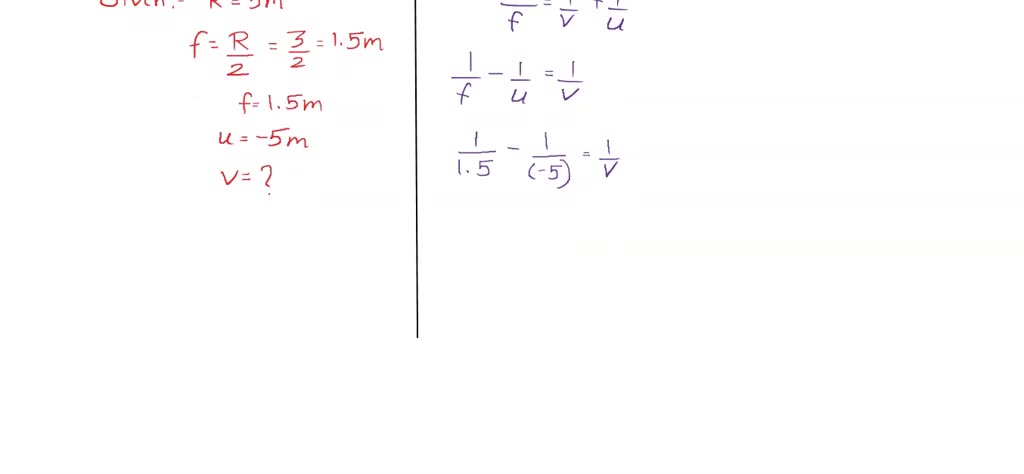 Given:- R = 3m
f = R/2 = 3/2 = 1.5m
f = 1.5m
u = -5m
v = ?
1/f = 1/v + 1/u
1/f - 1/u = 1/v
1/1.5 - 1/(-5) = 1/v